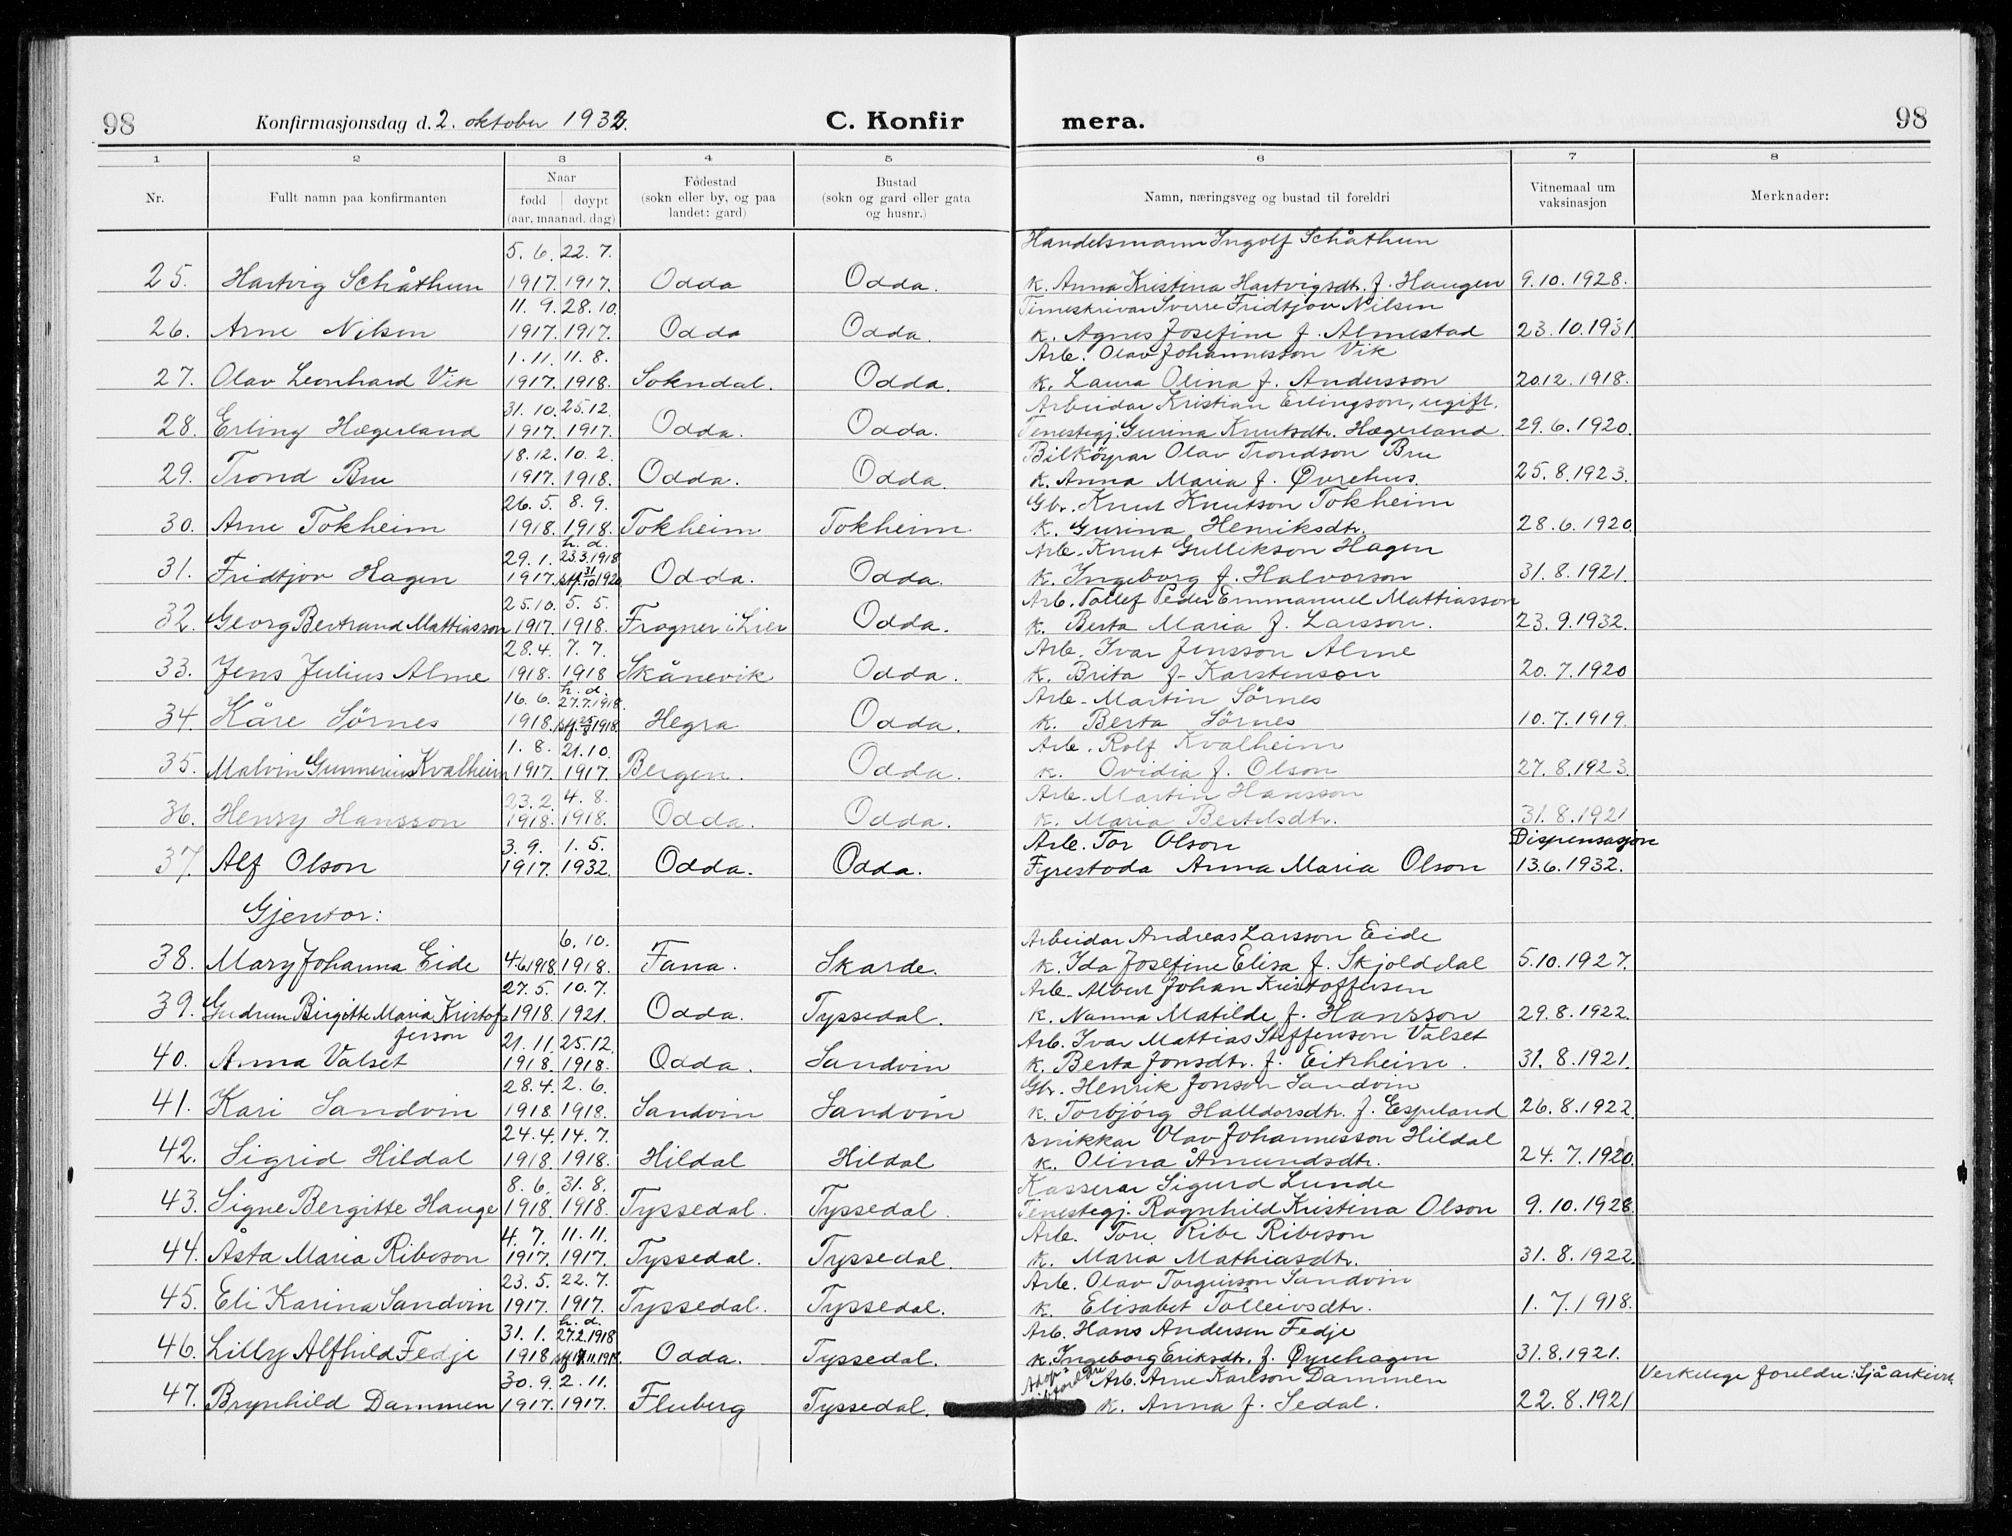 98 Konfirmasjonsdag d. 2. oktober 1932. C. Konfir mera. 98
1 2 3 4 5 6 7 8
Nr. Fullt namn paa konfirmanten Naar fødd døypt (aar, maanad. dag) Fødestad (sokn eller by, og paa landet: gard) Bustad (sokn og gard eller gata og husnr.) Namn, næringsveg og bustad til foreldri Vitnemaal um vaksinasjon Merknader:
5. 6. 22. 7. Handelsmann Ingolf Schåthun
25. Hartvig Schåthun 1917. 1917. Odda Odda. k. Anna Kristina Hartvigsdt. f. Haugen 9.10.1928.
11. 9. 28. 10. Timeskrivar Sverre Fridtjov Nilsen
26. Arne Nilsen 1917. 1917. Odda Odda. k. Agnes Josefine f. Almestad 23.10.1931
1. 11. 11. 8. Arb. Olav Johannesson Vik
27. Olav Leonhard Vik 1917. 1918. Sokndal. Odda. k. Laura Olina f. Andersson 20.12.1918.
31. 10. 25. 12. Arbeidar Kristian Erlingson, ugift.
28. Erling Hægerland 1917. 1917. Odda. Odda. Tenestegj. Gurina Knutsdt. Hægerland. 29.6.1920.
18. 12. 10. 2. Bilköyrar Olav Trondson Bru
29. Trond Bru 1917. 1918. Odda. Odda. k. Anna Maria f. Øvrehus. 25.8.1923.
26. 5. 8. 9. Gbr. Knut Knutson Tokheim
30. Arne Tokheim 1918. 1918. Tokheim Tokheim k. Gurina Henriksdtr. 28.6.1920
29. 1. h. d. 23.3.1918 Arb. Knut Gullikson Hagen
31. Fridtjov Hagen 1917. stf 31/10 1920 Odda. Odda. k. Ingeborg f. Halvorson 31.8.1921.
25. 10. 5. 5. Arb. Tollef Peder Emmanuel Mattiasson
32. Georg Bertrand Mattiasson 1917. 1918. Frogner i Lier Odda. k. Berta Maria f. Larsson. 23.9.1932.
28. 4. 7. 7. Arb. Ivar Jensson Alme
33. Jens Julius Alme 1918. 1918 Skånevik Odda. k. Brita f. Karstenson 20.7.1920
16. 6. h. d. 27.7.1918. Arb. Martin Sörnes
34. Kåre Sörnes 1918. stf. 25/8 1918. Hegra Odda. k. Berta Sörnes 10.7.1919.
1. 8. 21. 10. Arb. Rolf Kvalheim
35. Malvin Gunnerius Kvalheim 1917. 1917. Bergen. Odda. k. Ovidia f. Olson 27.8.1923.
23. 2. 4. 8. Arb. Martin Hansson
36. Henry Hansson 1918. 1918. Odda. Odda. k. Maria Bertelsdtr. 31.8.1921
3. 9. 1. 5. Arb. Tor Olson Dispensasjon
37. Alf Olson 1917. 1932. Odda. Odda. Fyrestoda Anna Maria Olson 13.6.1932.
Gjentor:
6. 10. Arbeidar Andreas Larsson Eide
38. Mary Johanna Eide 4.6.1918. 1918. Fana. Skarde. k. Ida Josefine Elisa f. Skjolddal 5.10.1927.
27. 5. 10. 7. Arb. Albert Johan Kristoffersen
39. Gudrun Birgitte Maria Kristof- 1918. 1921. Odda. Tyssedal. k. Nanna Matilde f. Hansson 29.8.1922.
ferson 21. 11. 25. 12. Arb. Ivar Mattias Steffenson Valset
40. Anna Valset 1918. 1918. Odda. Sandvin k. Berta Jonsdtr. f. Eitrheim. 31.8.1921.
28. 4. 2. 6. Gbr. Henrik Jonson Sandvin
41. Kari Sandvin 1918. 1918. Sandvin Sandvin k. Torbjörg Halldorsdtr. f. Espeland 26.8.1922.
24. 4. 14. 7. Snikkar Olav Johannesson Hildal
42. Sigrid Hildal 1918. 1918. Hildal Hildal k. Olina Åmundsdtr. 24.7.1920.
8. 6. 31. 8. Kasserar Sigurd Lunde
43. Signe Bergitte Hauge 1918. 1918. Tyssedal. Tyssedal. Tenestegj. Ragnhild Kristina Olson 9.10.1928
4. 7. 11. 11. Arb. Tore Ribe Ribeson
44. Åsta Maria Ribeson 1917. 1917. Tyssedal. Tyssedal. k. Maria Mathiasdtr. 31.8.1922.
23. 5. 22. 7. Arb. Olav Torgeirson Sandvin
45. Eli Karina Sandvin 1917. 1917. Tyssedal. Tyssedal. k. Elisabet Tolleivsdtr. 1.7.1918.
31. 1. h. d. 27.2.1918 Arb. Hans Andersen Fedje
46. Lilly Alfhild Fedje 1918 stf 17.11.1918. Odda. Tyssedal. k. Ingeborg Eriksdtr. f. Øyrehagen 31.8.1921.
30. 9. 2. 11. Adop. Arb. Arne Karlson Dammen Verkelege foreldre: Sjå arkivet.
47. Brynhild Dammen 1917. 1917. Fluberg Tyssedal. k. Anna f. Sedal. 22.8.1921